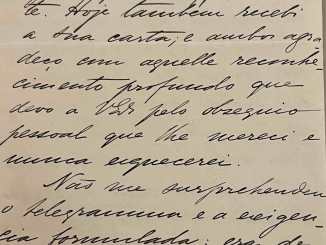 te. Hoje tambem recebi
a sua carta; e ambos agra
deço com aquelle reconhe-
cimento profundo que
devo a VEx pelo obsequio
pessoal que lhe mereci e
nunca esquecerei.
Não me surprehendeu
o telegramma e a exigen-
cia formulada; era de